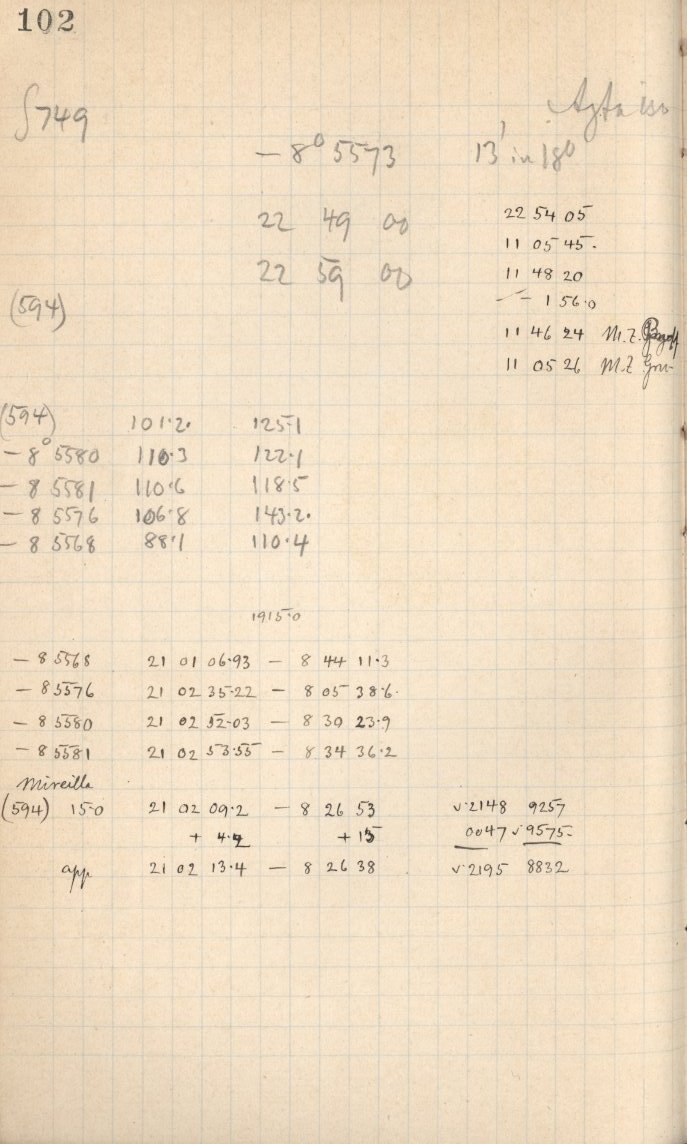 102
∫749
− 8° 5573 13' in 18°
22 49 00 22 54 05
11 05 45.
22 59 00 11 48 20
(594) − 1 56.0
11 46 24 M.Z.
11 05 26 M.Z
(594) 101.2. 125.1
− 8° 5580 110.3 122.1
− 8 5581 110.6 118.5
− 8 5576 106.8 143.2.
− 8 5568 88.1 110.4
1915.0
− 8 5568 21 01 06.93 − 8 44 11.3
− 8 5576 21 02 35.22 − 8 05 38.6.
− 8 5580 21 02 52.03 − 8 30 23.9
− 8 5581 21 02 53.55 − 8 34 36.2
Mireille
(594) 15.0 21 02 09.2 − 8 26 53 v.2148 9257
+ 4.2 + 15 0047 v.9575.
app 21 02 13.4 − 8 26 38 v.2195 8832